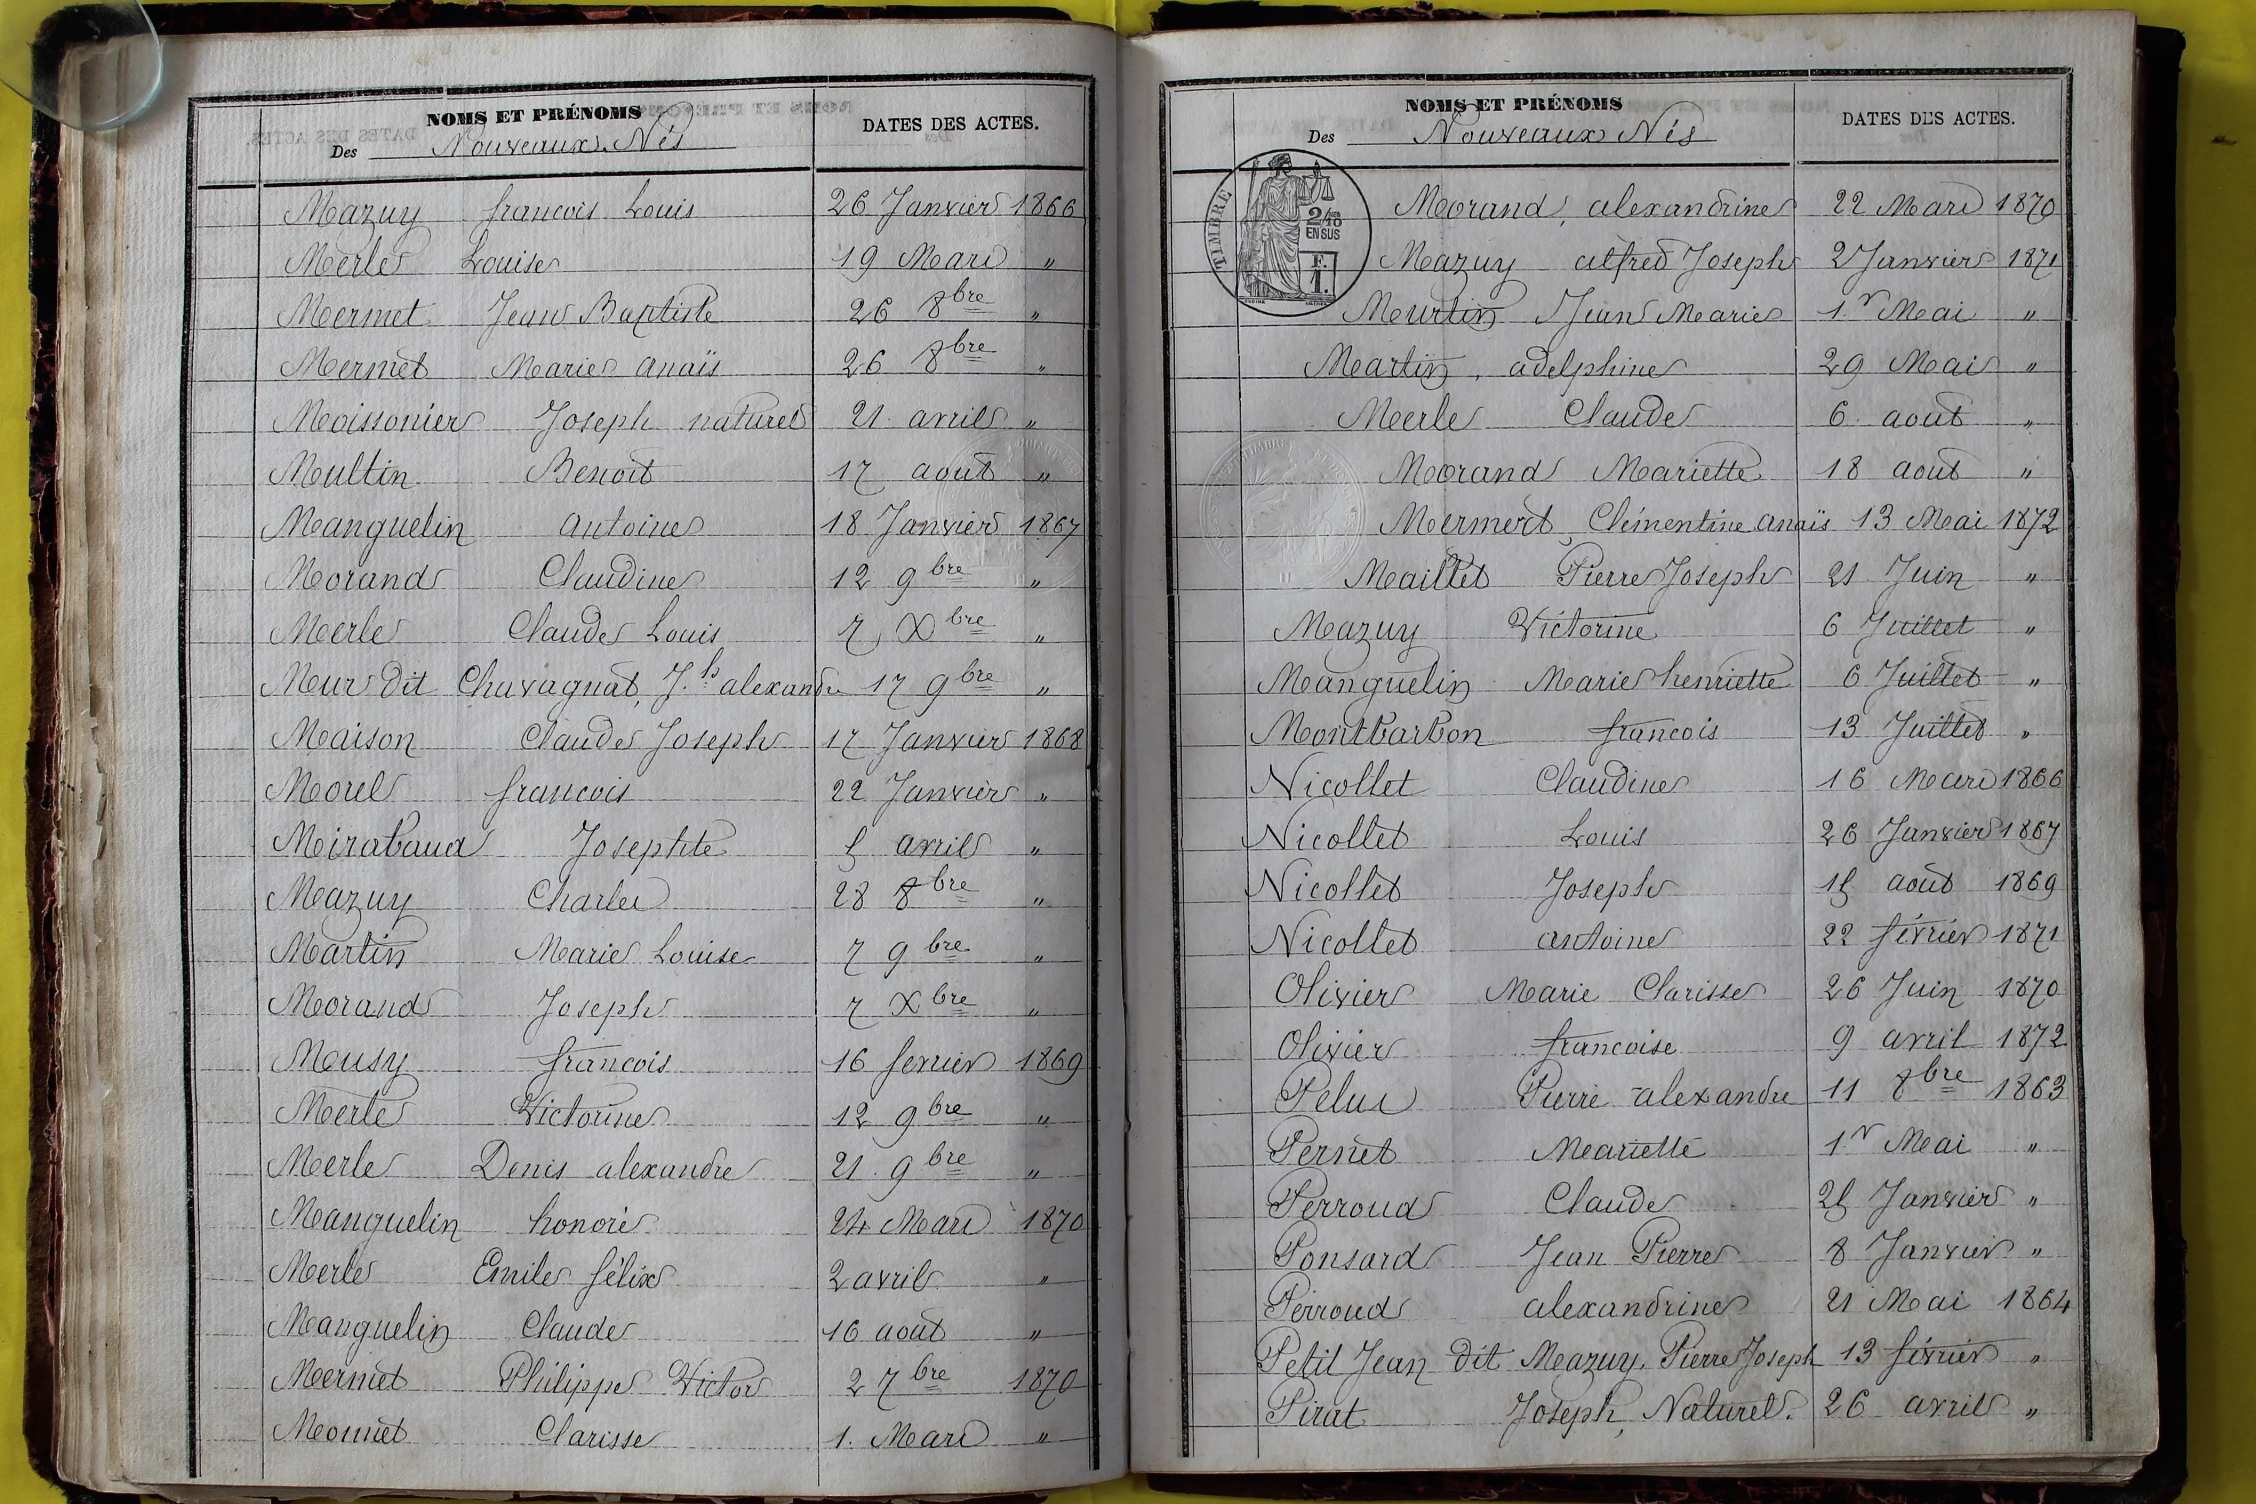 NOMS ET PRÉNOMS
DATES DES ACTES.
Des Nouveaux Nés
Mazuy francois Louis 26 Janvier 1866
Merle Louise 19 Mars "
Mermet Jean Baptiste 26 8bre "
Mermet Marie anaïs 26 8bre "
Moissonier Joseph naturel 21 avril "
Multin Benoit 17 aout "
Manguelin antoine 18 Janvier 1867
Morand Claudine 12 9bre "
Merle Claude Louis 7 Xbre "
Mur dit Chavagnat, J.h alexandre 17 9bre "
Maison Claude Joseph 17 Janvier 1868
Morel francois 22 Janvier "
Mirabaud Josephte 5 avril "
Mazuy Charles 28 8bre "
Martin Marie Louise 7 9bre "
Morand Joseph 7 Xbre "
Musy francois 16 fevrier 1869
Merle Victorine 12 9bre "
Merle Denis alexandre 21 9bre "
Manguelin honoré 24 Mars 1870
Merle Emile félix 2 avril "
Manguelin Claude 16 aout "
Mermet Philippe Victor 2 7bre 1870
Monnet Clarisse 1. Mars "
NOMS ET PRÉNOMS
DATES DES ACTES.
Des Nouveaux Nés
TIMBRE
2/10
EN SUS
F.
1.
Morand, alexandrine 22 Mars 1870
Mazuy alfred Joseph 2 Janvier 1871
Murtin Jean Marie 1r Mai "
Martin, adelphine 29 Mai "
Merle Claude 6 aout "
Morand Mariette 18 aout "
Mermert Clémentine anaïs 13 Mai 1872
Maillet Pierre Joseph 21 Juin "
Mazuy Victorine 6 Juillet "
Manguelin Marie henriette 6 Juillet "
Montbarbon francois 13 Juillet "
Nicollet Claudine 16 Mars 1866
Nicollet Louis 26 Janvier 1867
Nicollet Joseph 15 août 1869
Nicollet antoine 22 février 1871
Olivier Marie Clarisse 26 Juin 1870
Olivier francoise 9 avril 1872
Pelus Pierre alexandre 11 8bre 1863
Pernet Mariette 1r Mai "
Perroud Claude 25 Janvier "
Ponsard Jean Pierre 8 Janvier "
Perroud alexandrine 21 Mai 1864
Petit Jean dit Mazuy, Pierre Joseph 13 février "
Pirat Joseph, Naturel. 26 avril "